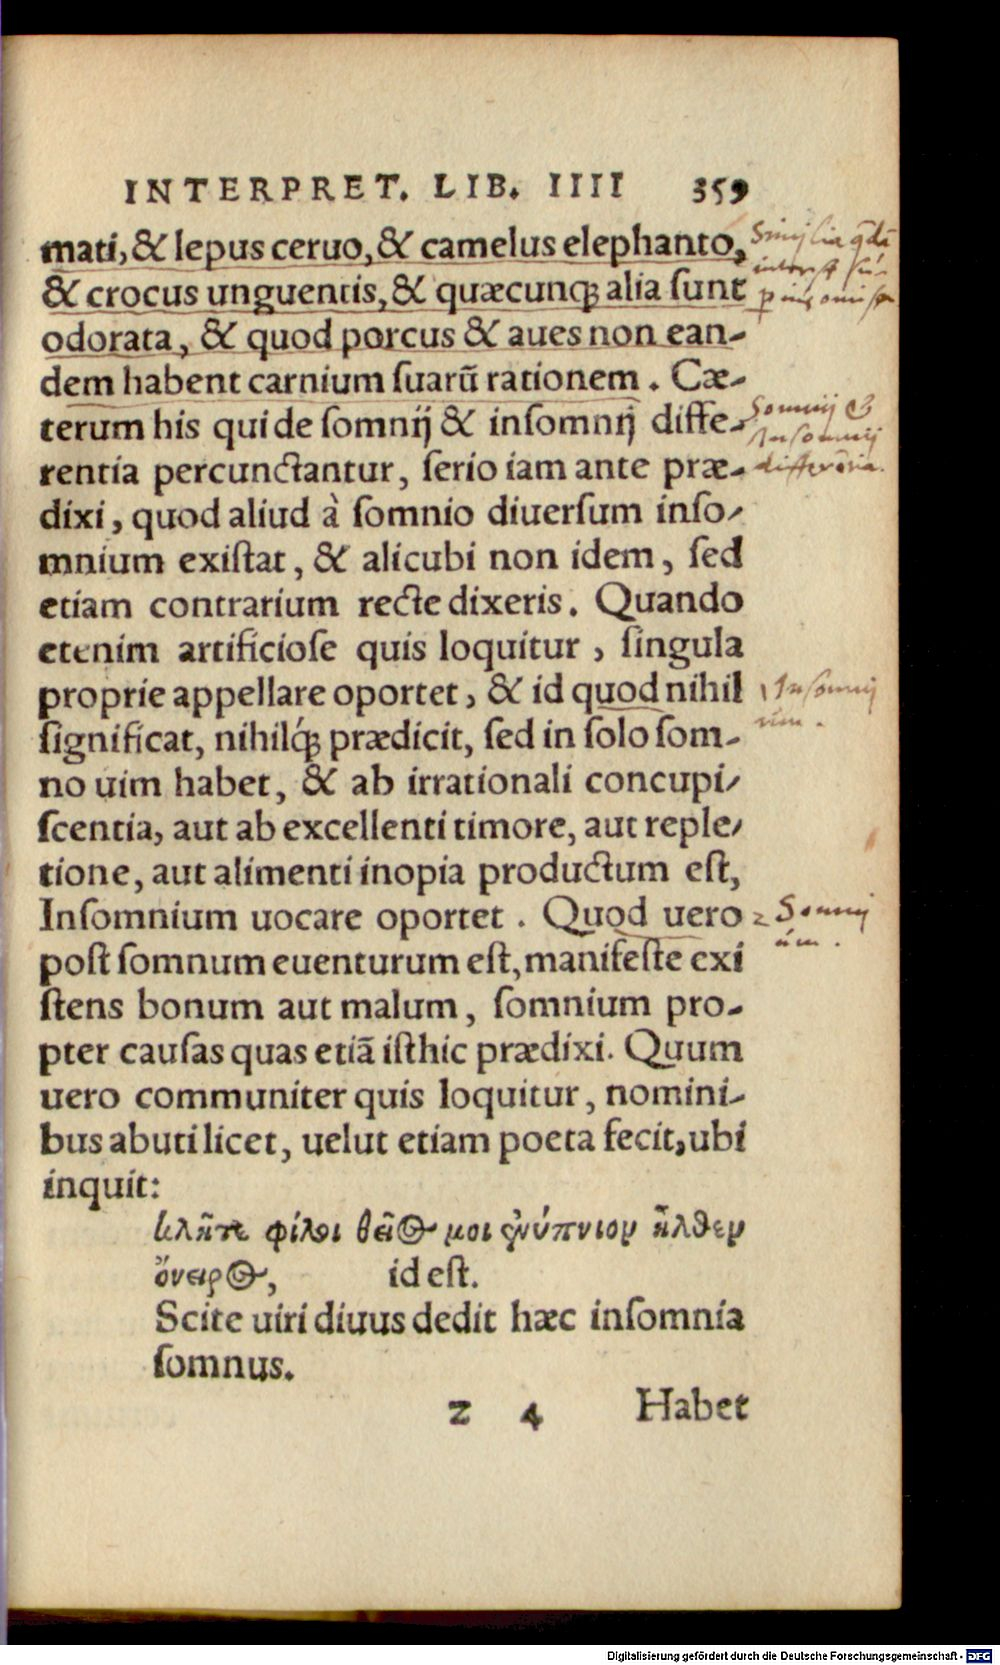 INTERPRET. LIB. IIII 359
mati, & lepus ceruo, & camelus elephanto,
& crocus unguentis, & quæcunq; alia sunt
odorata, & quod porcus & aues non ean-
dem habent carnium suarũ rationem. Cæ-
terum his qui de somnij & insomnij diffe-
rentia percunctantur, serio iam ante præ-
dixi, quod aliud à somnio diuersum inso-
mnium existat, & alicubi non idem, sed
etiam contrarium recte dixeris. Quando
etenim artificiose quis loquitur, singula
proprie appellare oportet, & id quod nihil
significat, nihilq́; prædicit, sed in solo som-
no uim habet, & ab irrationali concupi-
scentia, aut ab excellenti timore, aut reple-
tione, aut alimenti inopia productum est,
Insomnium uocare oportet. Quod uero
post somnum euenturum est, manifeste exi
stens bonum aut malum, somnium pro-
pter causas quas etiã isthic prædixi. Quum
uero communiter quis loquitur, nomini-
bus abuti licet, uelut etiam poeta fecit, ubi
inquit:
κλῦτε φίλοι θεῖός μοι ἐνύπνιον ἦλθεν
ὄνειρος, id est.
Scite uiri diuus dedit hæc insomnia
somnus.
z 4 Habet
Similia
Somnij &
Insomnij
differẽtia.
1 Insomnij
um.
2 Somnij
um.
Digitalisierung gefördert durch die Deutsche Forschungsgemeinschaft - DFG